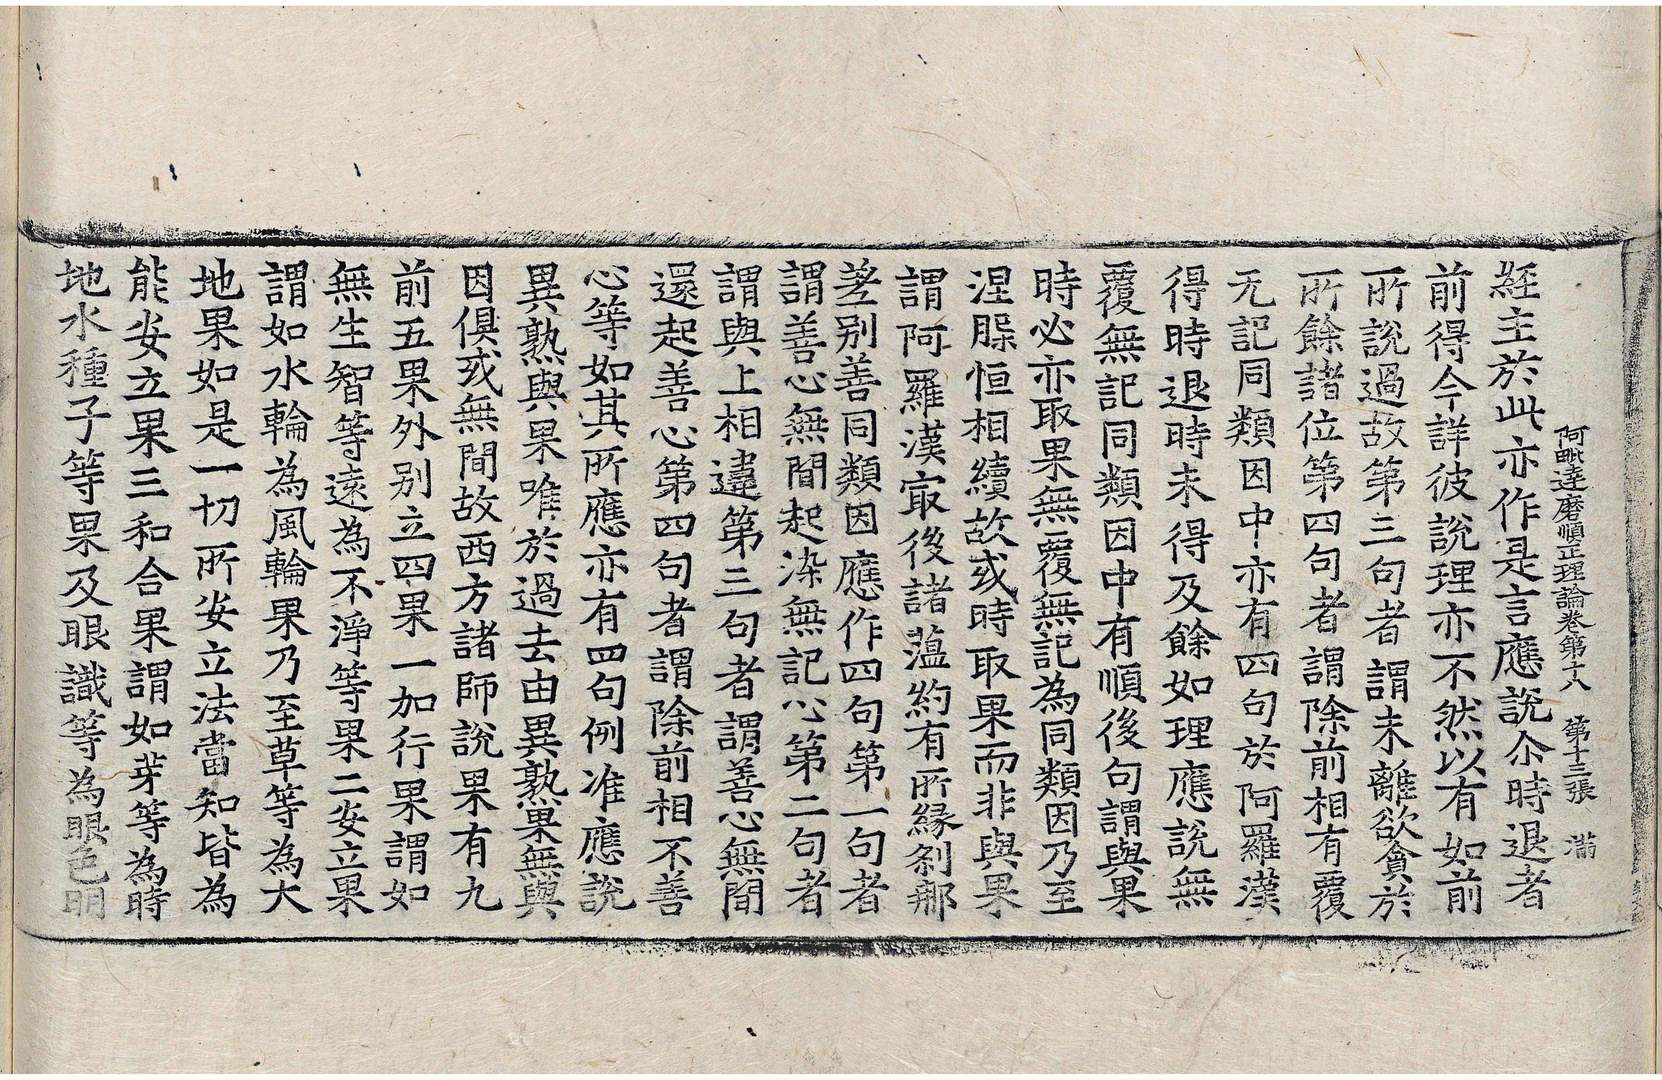 阿毗達磨順正理論卷第十八 第十三張 滿
經主於此亦作是言應說尒時退者
前得今詳彼說理亦不然以有如前
所說過故第三句者謂未離欲貪於
所餘諸位第四句者謂除前相有覆
无記同類因中亦有四句於阿羅漢
得時退時未得及餘如理應說無
覆無記同類因中有順後句謂與果
時必亦取果無覆無記為同類因乃至
涅脲恒相續故或時取果而非與果
謂阿羅漢㝡後諸薀約有所緣剎那
差別善同類因應作四句第一句者
謂善心無間起染無記心第二句者
謂與上相違第三句者謂善心無間
還起善心第四句者謂除前相不善
心等如其所應亦有四句例准應說
異熟與果唯於過去由異熟果無與
因俱或無間故西方諸師說果有九
前五果外別立四果一加行果謂如
無生智等遠為不淨等果二安立果
謂如水輪為風輪果乃至草等為大
地果如是一切所安立法當知皆為
能安立果三和合果謂如芽等為時
地水種子等果及眼識等為眼色明